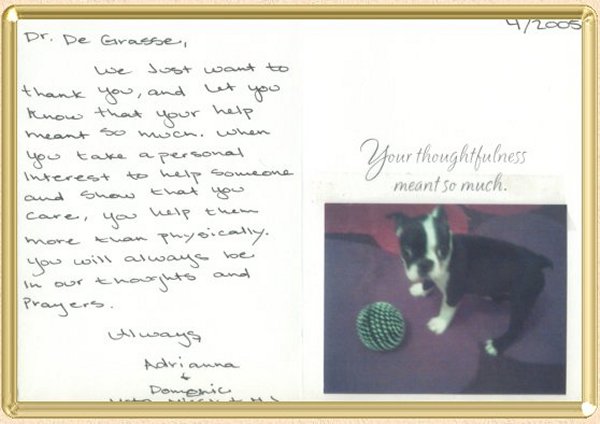 Dr. De Grasse,
We Just want to
thank you, and let you
know that your help
meant so much. When
you take a personal
Interest to help someone
and show that you
care, you help them
more than physically.
you will always be
In our thoughts and
Prayers.
Always
Adrianna
+
Domenic
4/2005
Your thoughtfulness
meant so much.